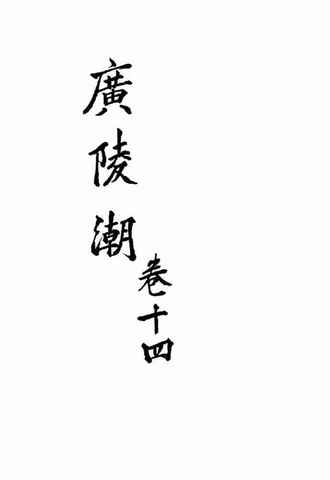 廣陵潮
卷十四